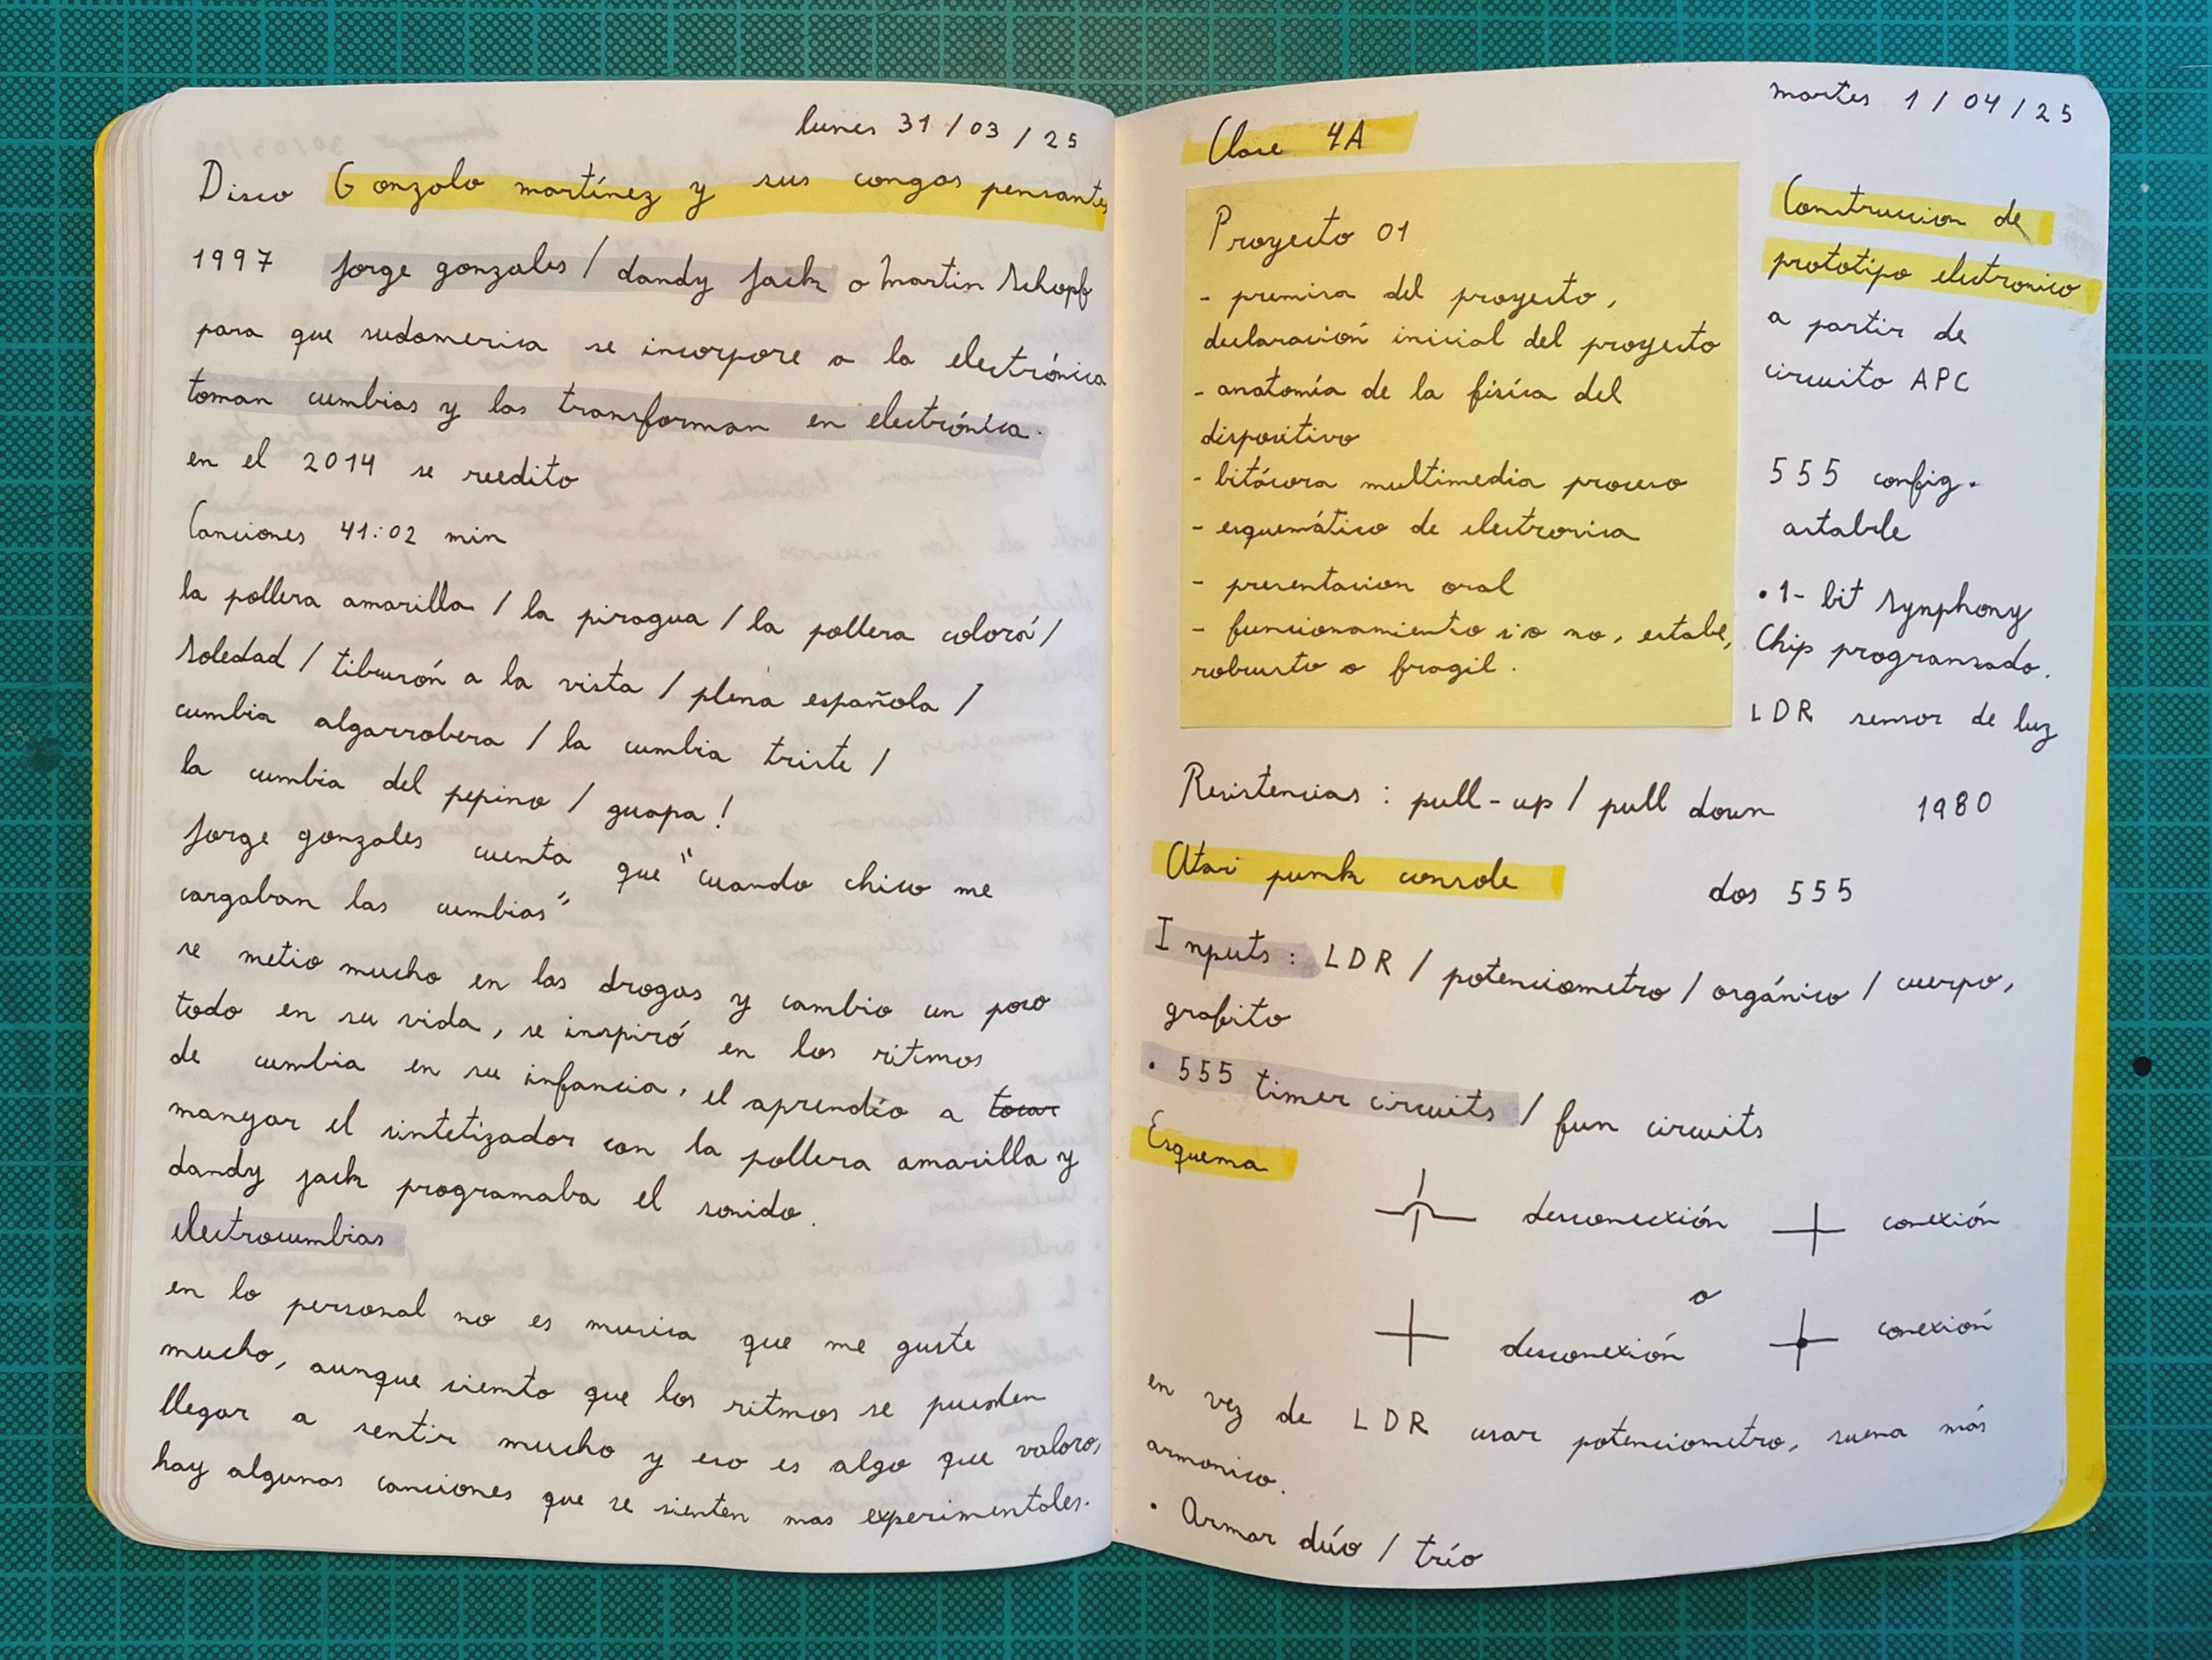 lunes 31/03/25
Disco Gonzalo martínez y sus congas pensantes
1997 Jorge gonzales / dandy Jack o Martin Schopf
para que sudamerica se incorpore a la electrónica
toman cumbias y las transforman en electrónica.
en el 2014 se reedito
Canciones 41:02 min
la pollera amarilla / la piragua / la pollera colorá /
Soledad / tiburón a la vista / plena española /
cumbia algarrobera / la cumbia triste /
la cumbia del pepino / guapa!
Jorge gonzales cuenta que "cuando chico me
cargaban las cumbias"
se metio mucho en las drogas y cambio un poco
todo en su vida, se inspiró en los ritmos
de cumbia en su infancia, el aprendío a tocar
manejar el sintetizador con la pollera amarilla y
dandy jack programaba el sonido.
electrocumbias
en lo personal no es musica que me guste
mucho, aunque siento que los ritmos se pueden
llegar a sentir mucho y eso es algo que valoro,
hay algunas canciones que se sienten mas experimentales.
martes 1/04/25
Clase 4A
Proyecto 01
- premisa del proyecto,
declaración inicial del proyecto
- anatomía de la física del
dispositivo
- bitácora multimedia proceso
- esquemático de electronica
- presentacion oral
- funcionamiento si o no, estable,
robusto o fragil.
Construccion de
prototipo electronico
a partir de
circuito APC
555 config.
astable
• 1-bit Symphony
Chip programado.
LDR sensor de luz
Resistencias : pull-up / pull down 1980
Atari punk console dos 555
Inputs: LDR / potenciometro / orgánico / cuerpo,
grafito
• 555 timer circuits / fun circuits
Esquema
desconecxión conexión
o
desconexión conexión
en vez de LDR usar potenciometro, suena más
armonico.
• Armar dúo / trío